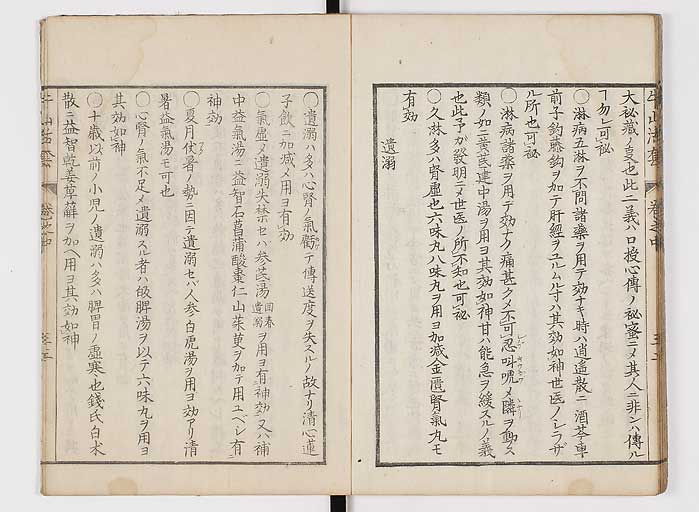 大祕藏ノ㕝也此二義ハ口授心傳ノ祕蜜ニメ其人ニ非ンハ傳ル
ヿ勿レ可祕
○淋病五淋ヲ不問諸藥ヲ用テ効ナキ時ハ逍遙散ニ酒芩車
前子鈎藤鈎ヲ加テ肝經ヲユルムル寸ハ其効如神世医ノシラザ
ル所也可祕
○淋病諸藥ヲ用テ効ナク痛甚クメ不可忍叫喚メ隣ヲ動ス
類ノ如ニ黄茋建中湯ヲ用ヨ其効如神甘ハ能急ヲ緩スルノ義
也此予が發明ニメ世医ノ所不知也可祕
○久淋多ハ腎虚也六味丸八味丸ヲ用ヨ加減金匱腎氣丸モ
有効
遺溺
○遺溺ハ多ハ心腎ノ氣虧テ傳送度ヲ失スルノ故ナリ清心蓮
子飲ニ加減メ用ヨ有効
○氣虚メ遺溺失禁セハ参茋湯回春遺溺ヲ用ヨ有神効又ハ補
中益氣湯ニ益智石菖蒲酸棗仁山茱萸ヲ加テ用ユベシ有
神効
○夏月伏暑ノ勢ニ因テ遺溺セバ人参白虎湯ヲ用ヨ効アリ清
暑益氣湯モ可也
○心腎ノ氣不足メ遺溺スル者ハ皈脾湯ヲ以テ六味丸ヲ用ヨ
其効如神
○十歳以前ノ小児ノ遺溺ハ多ハ脾胃ノ虚寒也錢氏白朮
散ニ益智乾姜萆薢ヲ加ヘ用ヨ其効如神